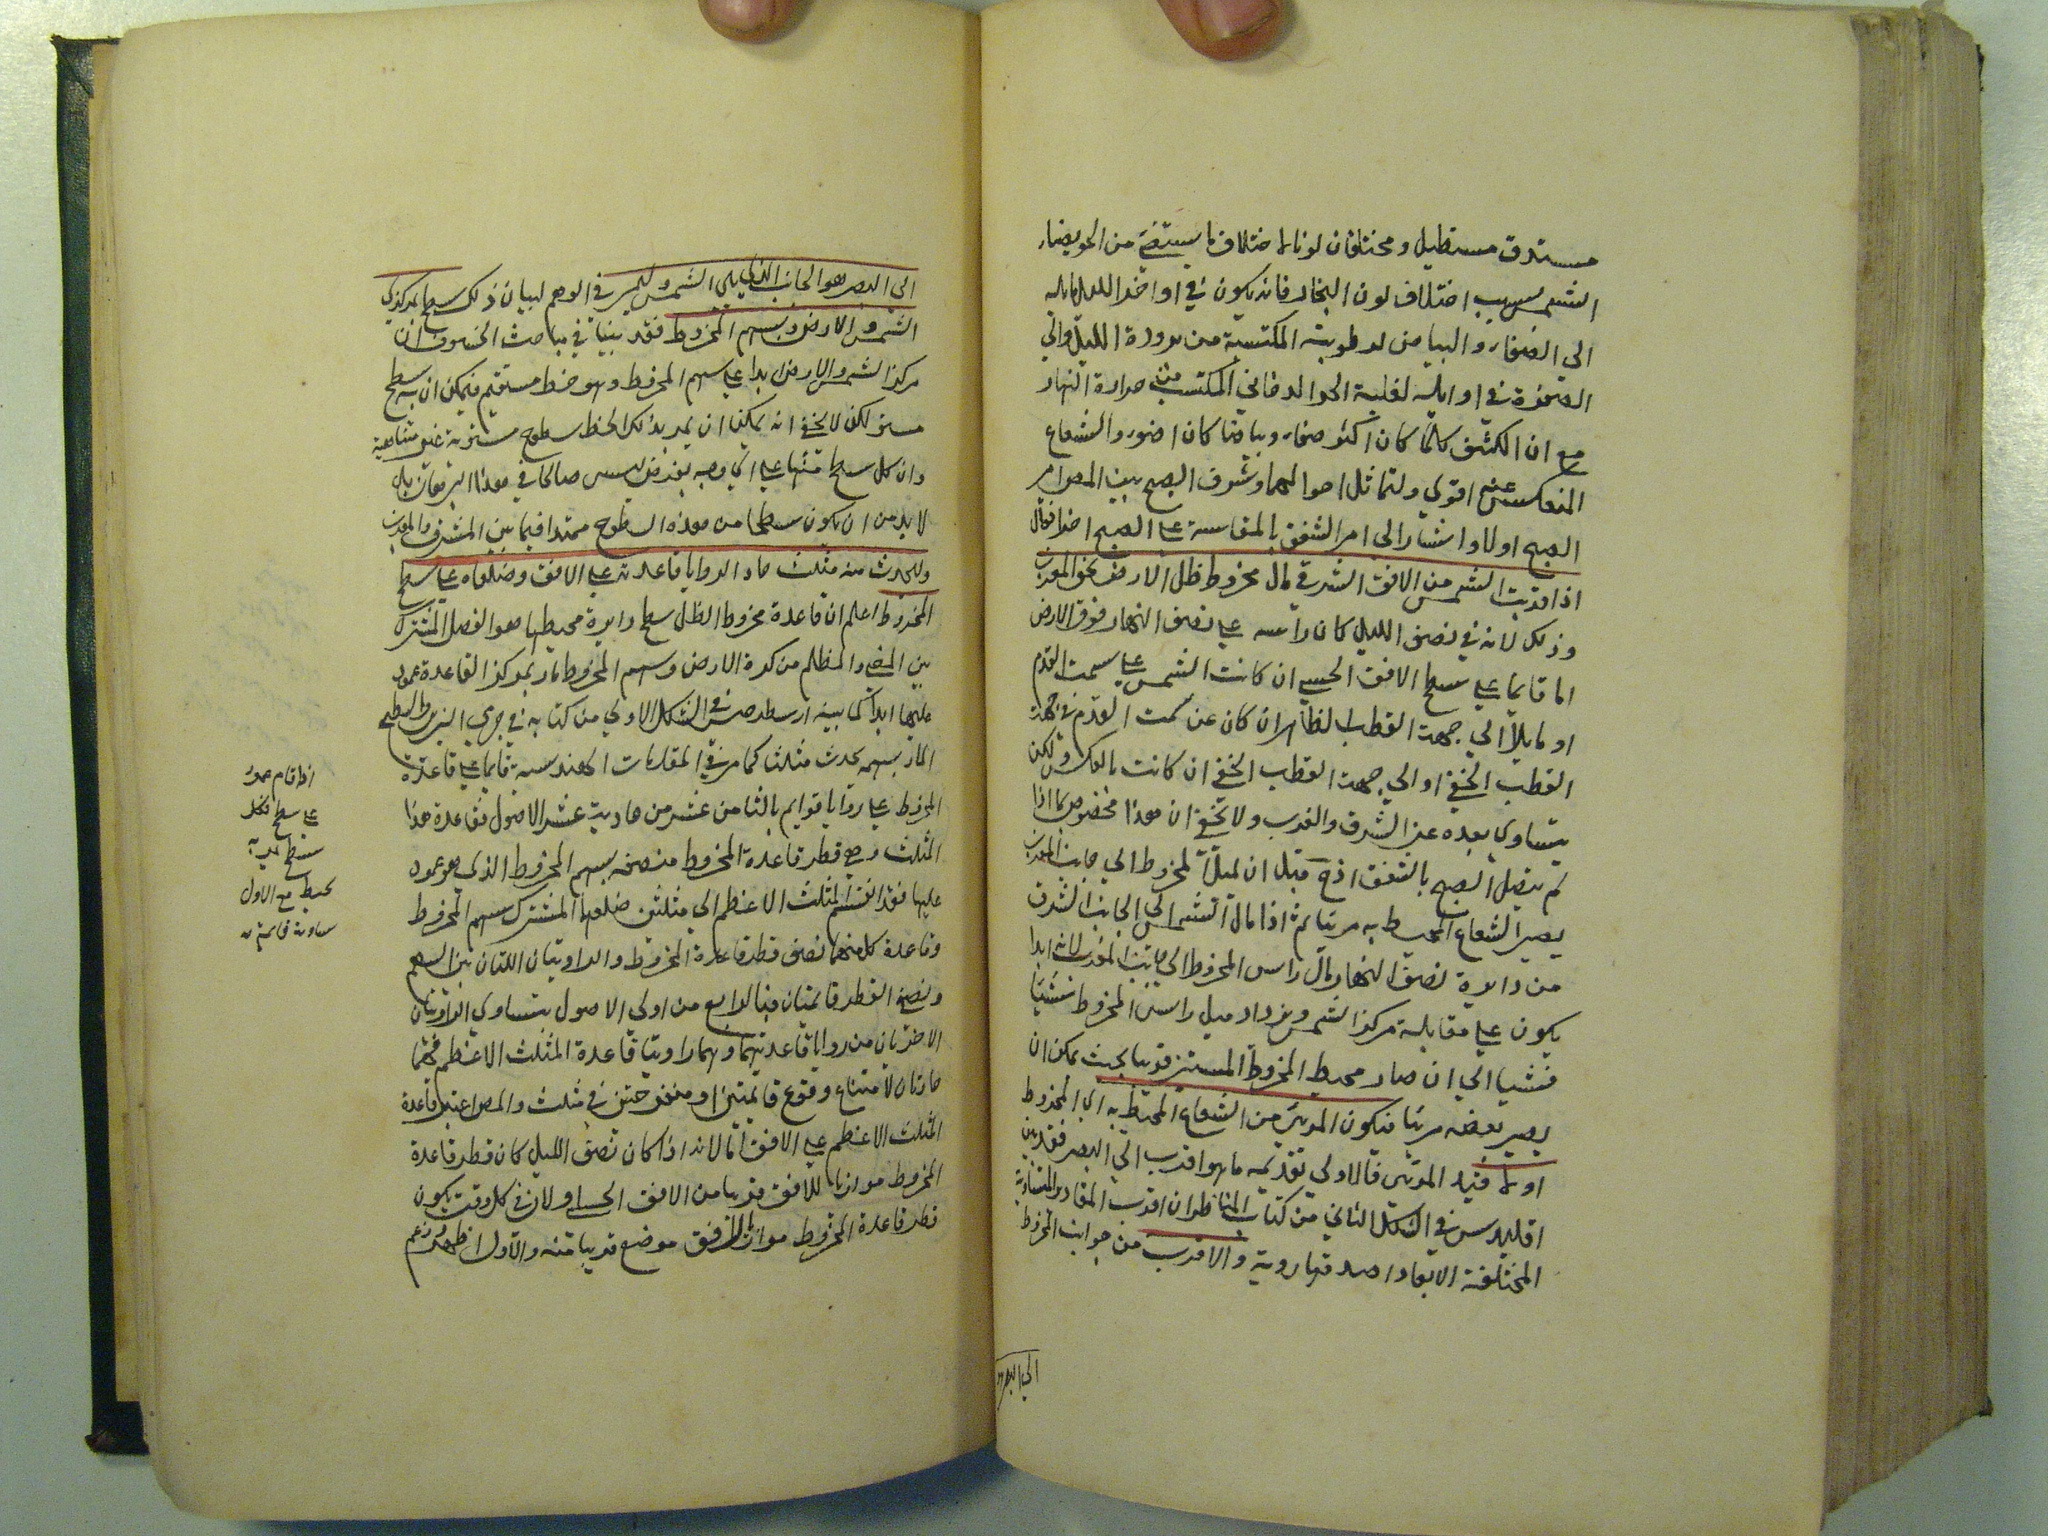 مستدق مستطيل ومختلفان لونا لاختلاف ما يستضئ من الجو بضياء
الشمس بسبب اختلاف لون البخار فانه يكون في اواخر الليل مايله
الى الصفاء والبياض لرطوبته المكتسبة من برودة الليل والى
الصفرة في اوايله لغلبة الجو الدخاني المكتسب من حرارة النهار
مع ان الكثيف كلما كان اكثر صفاء وبياضا كان اضوء والشعاع
المنعكس عنه اقوي ولتماثل احوالهما وشرف الصبح بين المص امر
الصبح اولا واشار الى امر الشفق بالمقايسة على الصبح اخرا فقال
اذا قربت الشمس من الافق الشرقي مال مخروط ظل الارض نحو المغرب
وذلك لانه في نصف الليل كان راسه على نصف النهار فوق الارض
اما قايما على سطح الافق الحسي ان كانت الشمس على سمت القدم
او مايلا الي جهة القطب الظاهر ان كان عن سمت القدم في جهة
القطب الخفي او الي جهة القطب الخفي ان كانت بالعكس ولكن
يتساوي بعده عن الشرق والغرب ولا يخفي ان هذا مخصوص بما اذا
لم يتصل الصبح بالشفق اذ ح قبل ان يميل المخروط الي جانب المغرب
يصير الشعاع المحيط به مرئيا ثم اذا مال الشمس الي الجانب الشرقي
من دايرة نصف النهار مال راس المخروط الي جانب المغرب لانه ابدا
يكون على مقابلة مركز الشمس ويزداد ميل راس المخروط شيئا
فشيئا الي ان صار محيط المخروط المستنير قريبا بحيث يمكن ان
يصير بعضه مرئيا فيكون المرئي من الشعاع المحيط به اي المخروط
اولا قيد المرئي فالاولي تقديمه ما هو اقرب الي البصر فقد بين
اقليدس في الشكل الثاني من كتاب المناظر ان اقرب المقادير المتساوية
المختلفة الابعاد اصدقها روية والاقرب من جوانب المخروط
الي البصر
الي البصر هو الجانب الذي يلي الشمس وليمر في الوهم لبيان ذلك سطح بمركزي
الشمس والارض وبسهم المخروط فقد بينا في مباحث الخسوف ان
مركز الشمس والارض ابدا على سهم المخروط وهو خط مستقيم فيمكن ان يمر به سطح
مستو لكن لا يخفي انه يمكن ان يمر بذلك الخط سطوح مستوية غير متناهية
وان كل سطح منها على اي وجه يفرض ليس صالحا في هذا البرهان بل
لا بد من ان يكون سطحا من هذه السطوح ممتدا فيما بين المشرق والمغرب
وليحدث منه مثلث حاد الزوايا قاعدته على الافق وضلعاه على سطح
المخروط اعلم ان قاعدة مخروط الظل سطح دايرة محيطها هو الفصل المشترك
بين المضئ والمظلم من كرة الارض وسهم المخروط مار بمركز القاعدة عمود
عليها ابدا كما بينه ارسطرخس في الشكل الاولي من كتابه في جرمي النيرين والسطح
المار بسهمه يحدث مثلثا كما مر في المقدمات الهندسية قايما على قاعدة
المخروط على زوايا قوايم بالثامن عشر من حادية عشر الاصول فقاعدة هذا
المثلث هي قطر قاعدة المخروط منصفه بسهم المخروط الذي هو عمود
عليها فقد انقسم المثلث الاعظم الي مثلثين ضلعهما المشترك سهم المخروط
وقاعدة كل منهما نصف قطر قاعدة المخروط والزاويتان اللتان بين السهم
ونصفي القطر قايمتان فبالرابع من اولي الاصول يتساوي الزاويتان
الاخريان من زوايا قاعدتيهما وهما زاويتا قاعدة المثلث الاعظم فهما
حادتان لامتناع وقوع قايمتين او منفرجتين في مثلث والمص اعتبر قاعدة
المثلث الاعظم على الافق اما لانه اذا كان نصف الليل كان قطر قاعدة
المخروط موازيا للافق قريبا من الافق الحسي او لان في كل وقت يكون
قطر قاعدة المخروط موازيا لافق موضع قريبا منه والاول اظهر
اذا قام خط
على سطح فكل
سطح يمر به
يحيط مع الاول
بزاوية قايمة